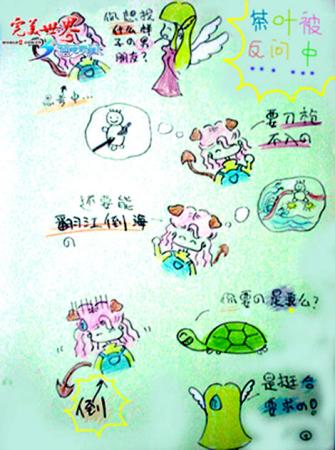 完美世界
你想找
什么样
子的男
朋友?
茶叶被
反问中
... ...
思考中...
要刀枪
不入的
还要能
翻江倒海
的
你要的是么?
倒
是挺合
要求的!